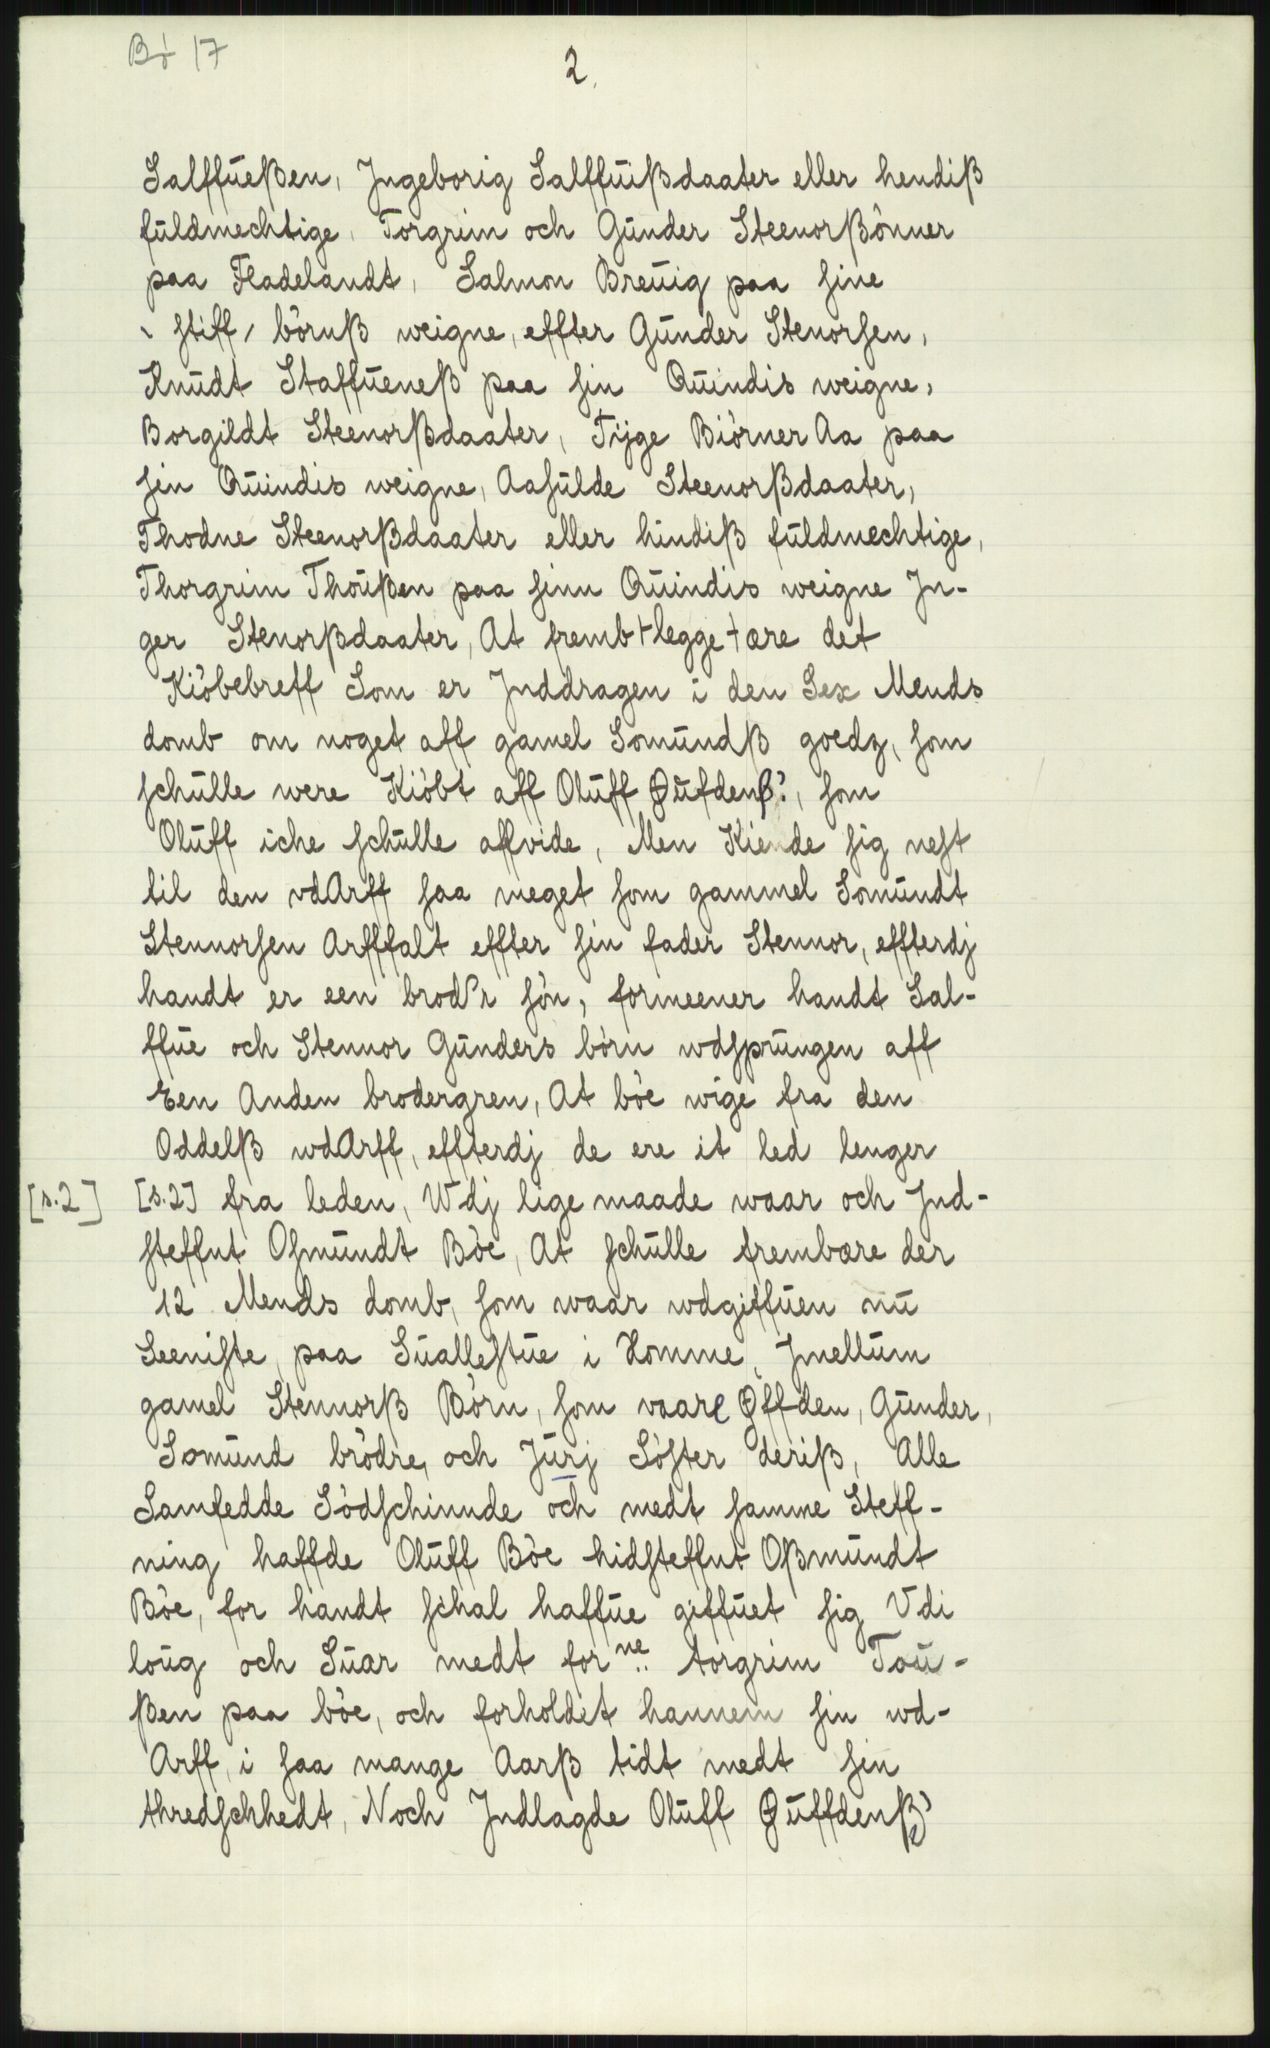 Bø 17
2.
Salffueßen, Jngeborig Salffuißdaater eller hendiß
fuldmechtige, Torgrim och Gunder Steenorßönner
paa Fladelandt, Salmon Breuig paa sine
, stiff, börnß weigne, effter Gunder Stenorsen,
Knudt Staffueneß paa sin Quindis weigne,
Borgildt Steenorßdaater, Tijge Biörner Aa paa
sin Quindis weigne, Aasulde Steenorßdaater,
Thodne Steenorßdaater eller hindiß fuldmechtige,
Thorgrim Thoußen paa sinn Quindis weigne Jn-
ger Stenorßdaater, At fremb+legge+ære det
Kiöbebreff Som er Jnddragen i den Sex Mends
domb om noget aff gamel Somundß goedz, som
schulle were Kiöbt aff Oluff Qufdenß?, som
Oluff iche schulle affvide, Men Kiende sig nest
til den vdArff saa meget som gammel Somundt
Stennorsen Arfffalt effter sin fader Stennor, effterdj
handt er een brod'r sön, formeener handt Sal-
ffue och Stennor Gunders börn wdsprungen aff
Een Anden brodergren, At böe wige fra den
Oddelß wdArff, effterdj de ere it led lenger
[s.2] [s.2] fra leden, Wdj lige maade waar och Jnd-
steffnt Osmundt Böe, At schulle frembære der
12 Mends domb, som waar wdgiffuen nu
Seeniste, paa Suallestue i Homme, Jmellum
gamel Stennorß Börn, som vaare Øffden, Gunder,
Somund brödre, och Jurj Söster deriß, Alle
Samfedde Södschinnde och medt samme Steff-
ning haffde Oluff Böe hidsteffnt Oßmundt
Böe, for handt schal haffue giffuet sig Vdi
loug och Suar medt forne torgrim Tou-
ßen paa böe, och forholdet hannem sin wd-
Arff, i saa mange Aarß tidt medt sin
thredschhedt, Noch Jndlagde Oluff Quffdenß?